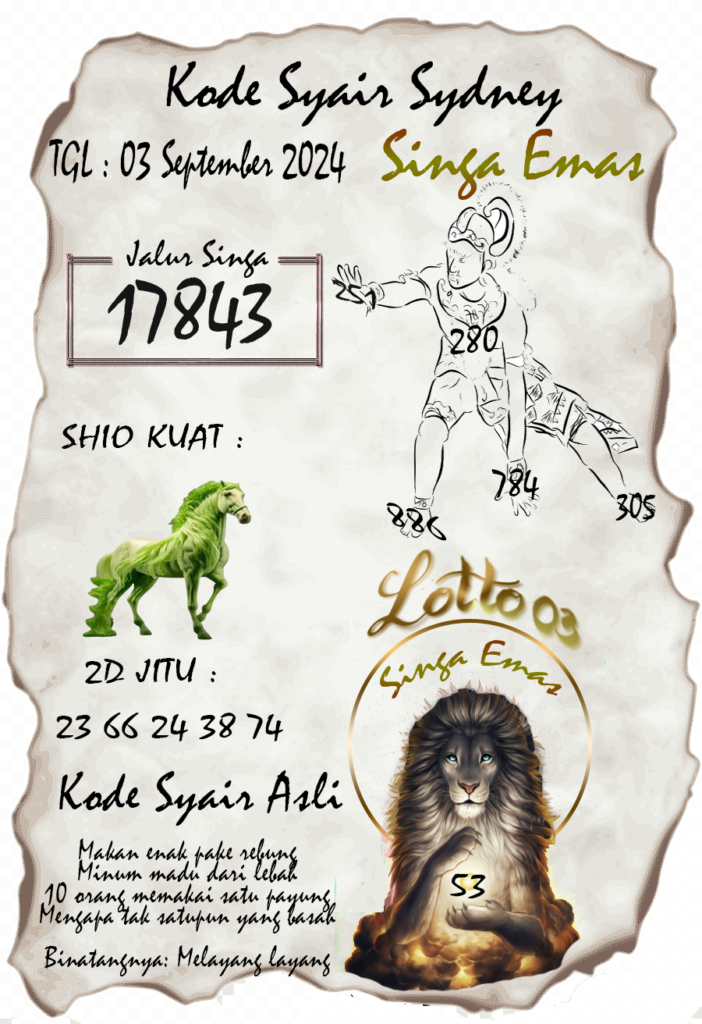 Kode Syair Sydney
TGL : 03 September 2024
Singa Emas
Jalur Singa
17843
251
280
784
886
305
SHIO KUAT :
Lotto 03
Singa Emas
2D JITU :
23 66 24 38 74
53
Kode Syair Asli
Makan enak pake rebung
Minum madu dari lebah
10 orang memakai satu payung
Mengapa tak satupun yang basah
Binatangnya: Melayang layang